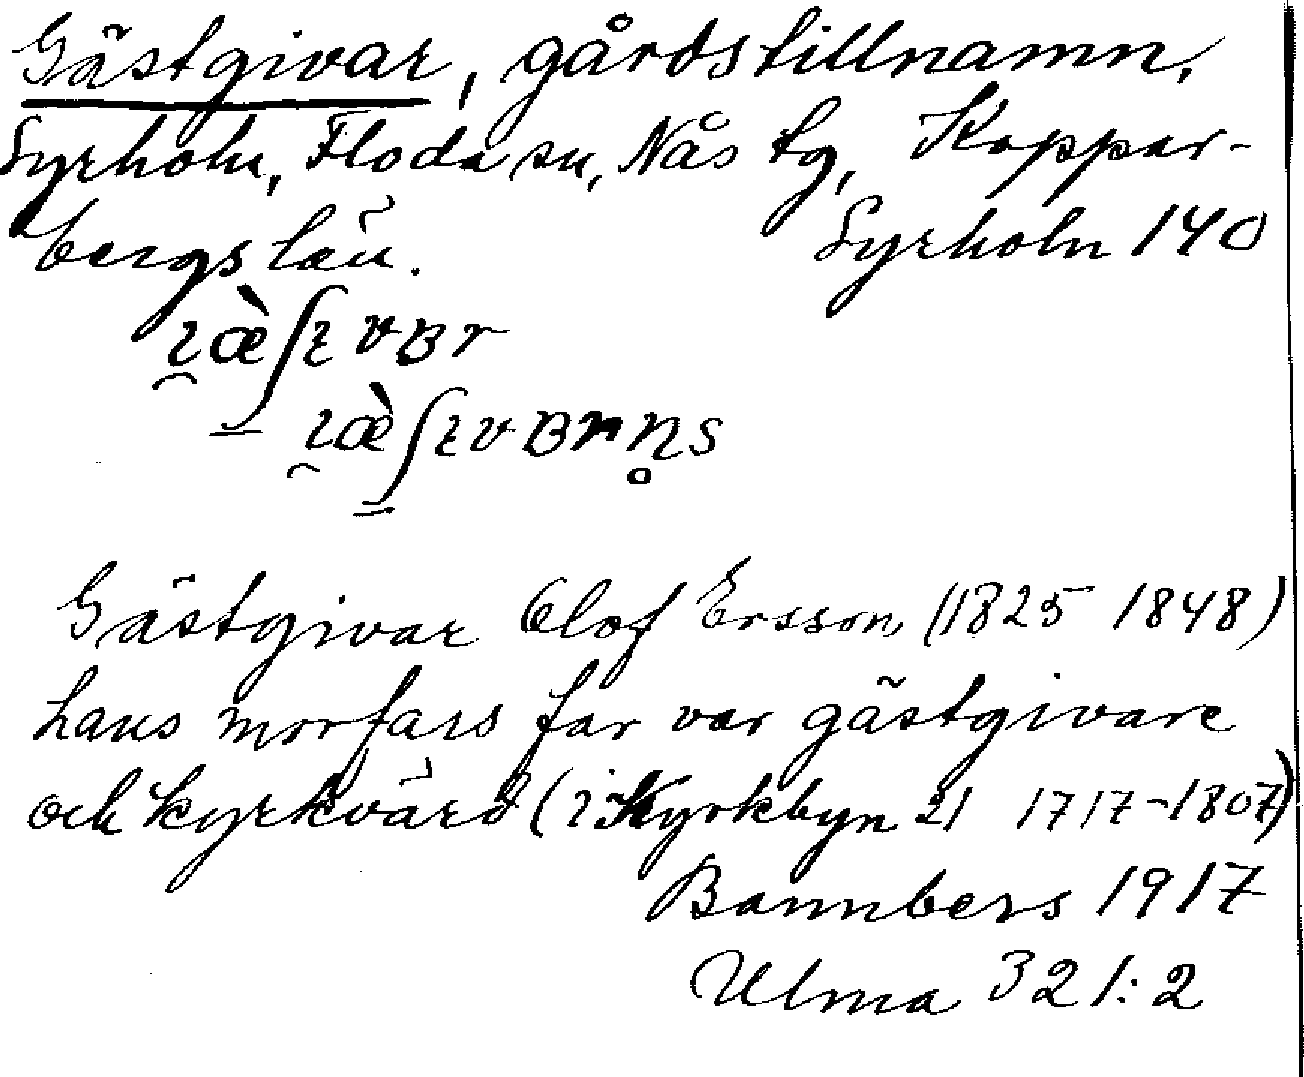 Gästgivar, gårdstillnamn,
Syrholn, Floda sn, Nås tg, Koppar-
bergs län.
Syrholn 140
Gästgivar Olof Ersson (1825 1848)
hans morfars far var gästgivare
och kyrkvärd (i Kyrkbyn 21 1717-1807)
Bannbers 1917
Ulma 321:2